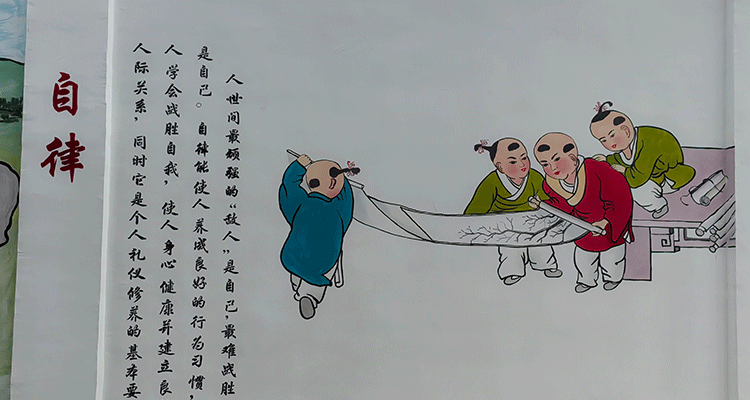 自律
人世间最顽强的“敌人”是自己,最难战胜
是自己。自律能使人养成良好的行为习惯,
人学会战胜自我,使人身心健康并建立良
人际关系,同时它是个人礼仪修养的基本要